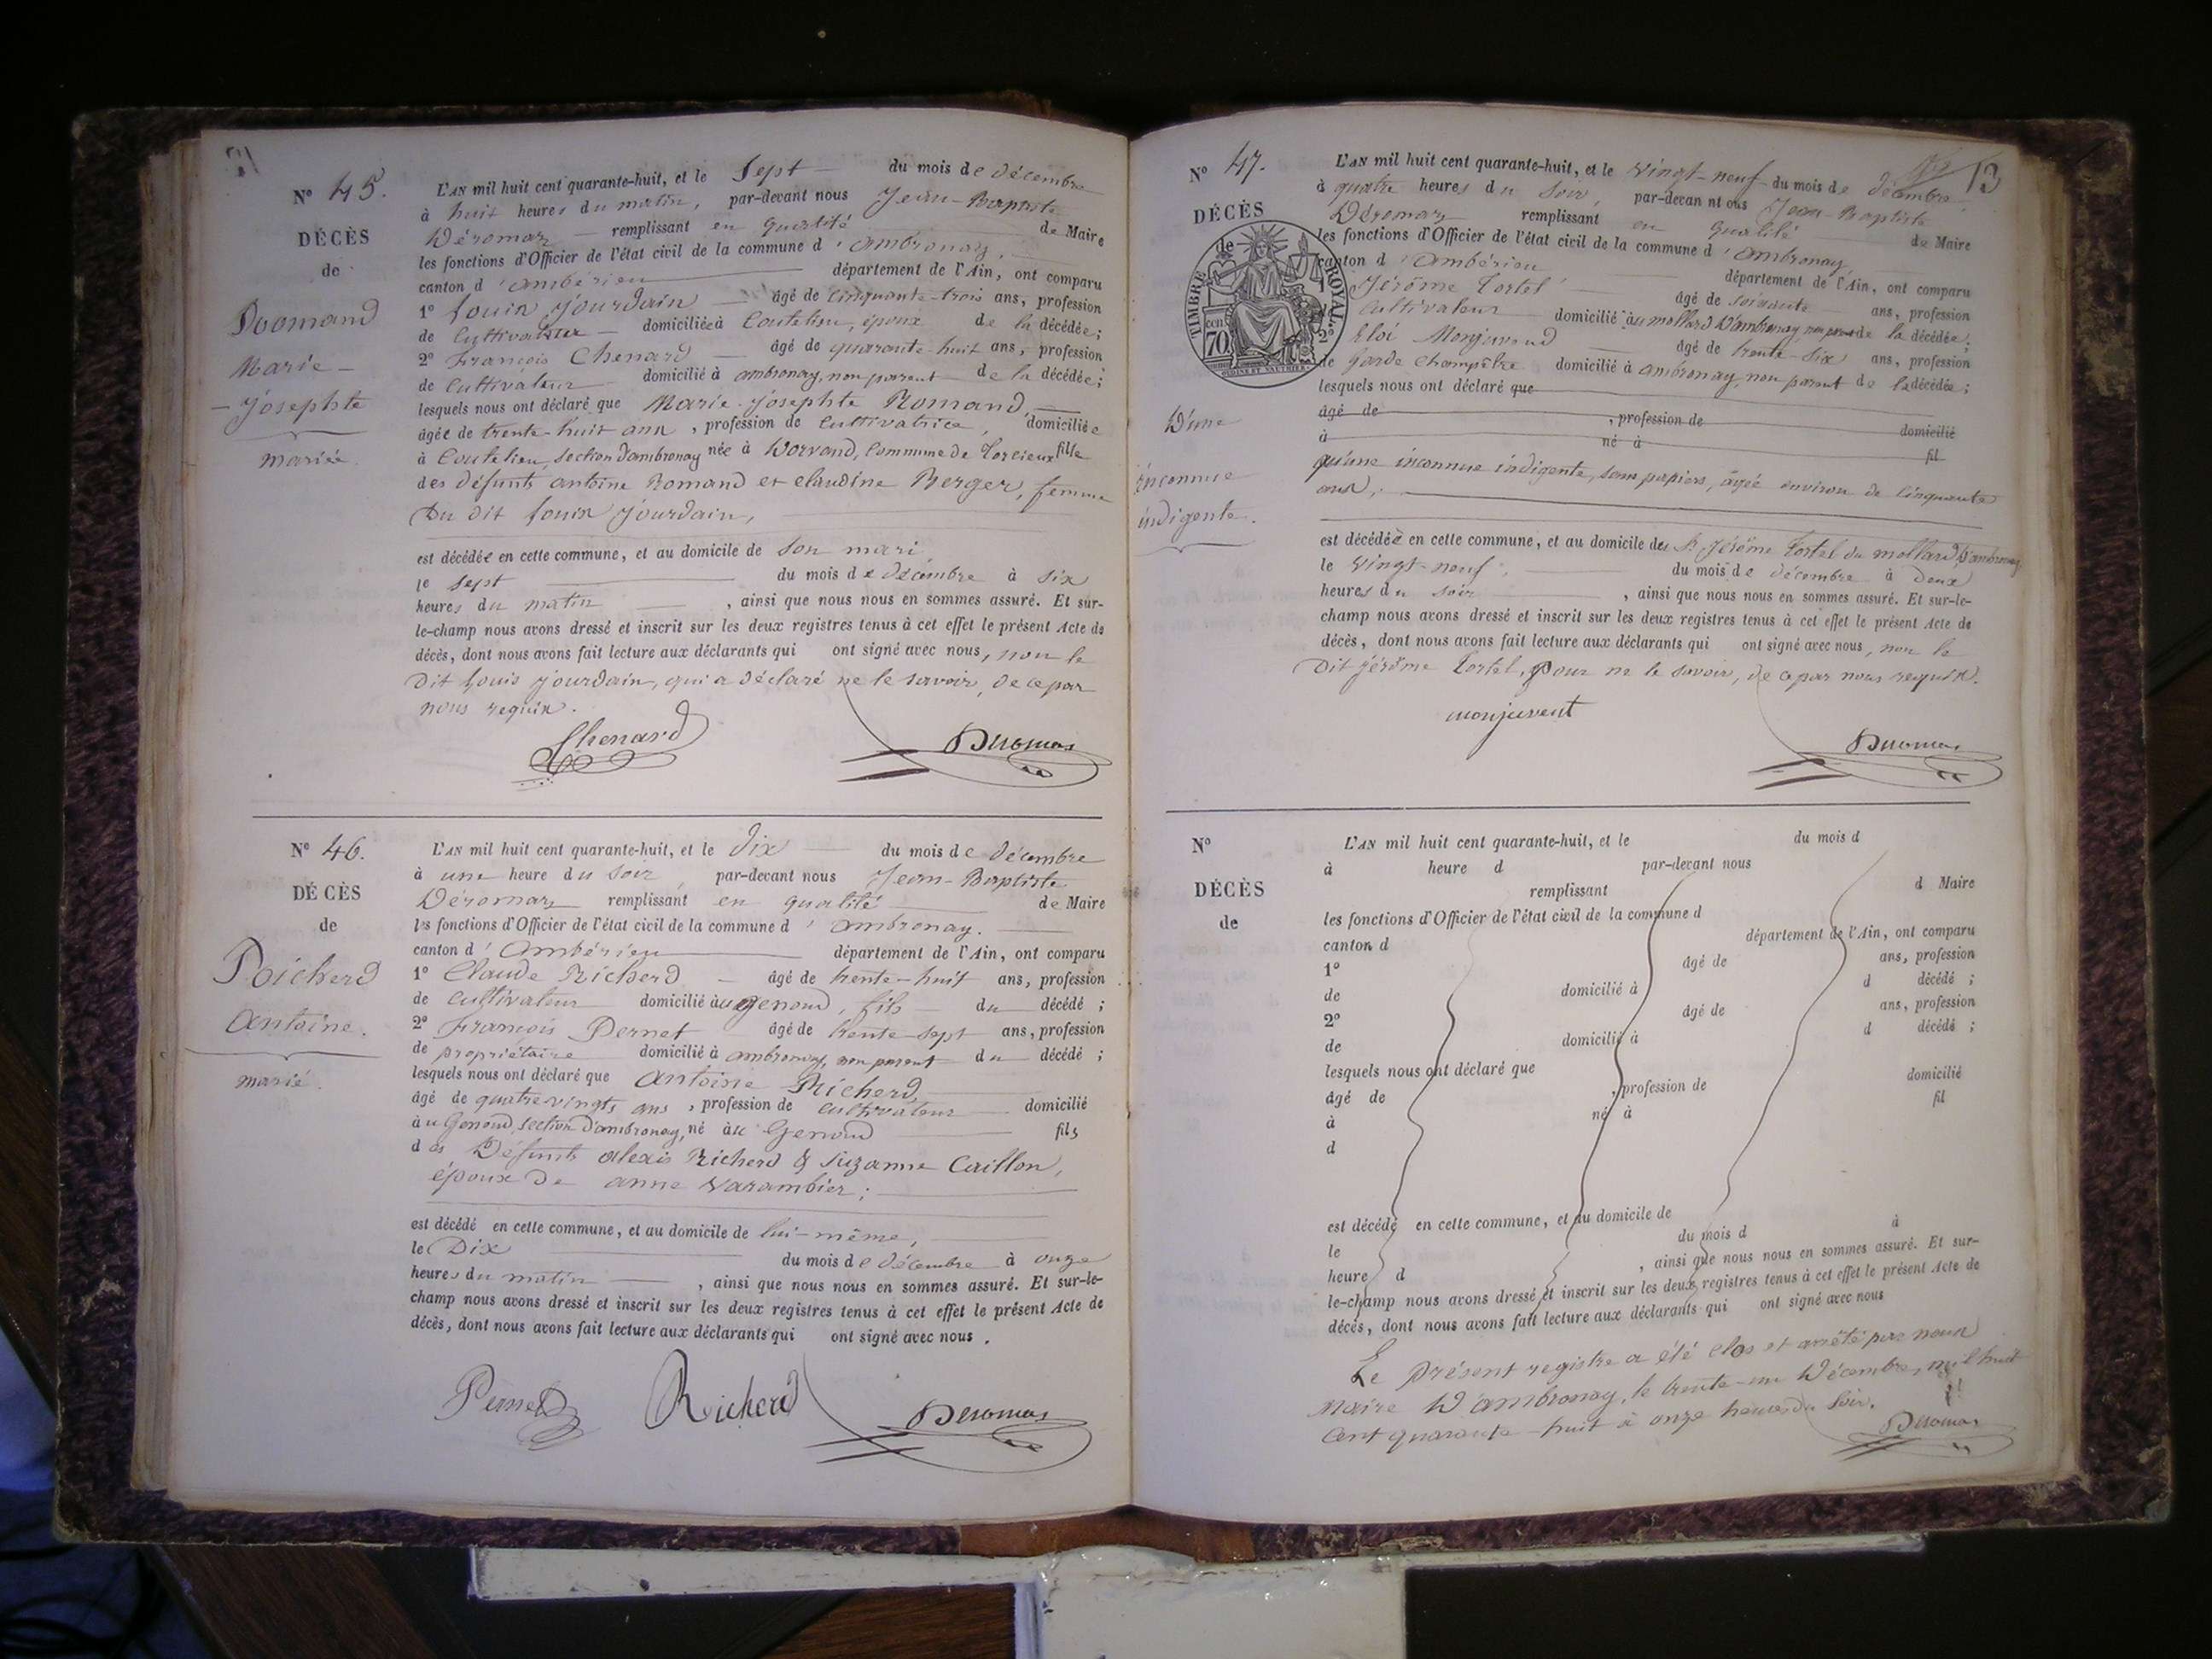 N° 45.
DÉCÈS
de
Romand
Marie-
-Josephte
mariée.
L'AN mil huit cent quarante-huit, et le Sept du mois de décembre
à huit heures du matin, par-devant nous Jean-Baptiste
Déromas remplissant en qualité de Maire
les fonctions d'Officier de l'état civil de la commune d'ambronay,
canton d'ambérieu département de l'Ain, ont comparu
1° Louis Jourdain âgé de cinquante-trois ans, profession
de Cultivateur domicilié à Coutelieu, époux de la décédée;
2° François Chenard âgé de quarante-huit ans, profession
de Cultivateur domicilié à ambronay, non parent de la décédée;
lesquels nous ont déclaré que Marie-Josephte Romand,
âgée de trente-huit ans, profession de Cultivatrice, domiciliée
à Coutelieu, section d'ambronay née à Dorvand, Commune de Torcieux fille
des défunts antoine Romand et claudine Berger, femme
Du dit Louis Jourdain,
est décédée en cette commune, et au domicile de Son mari
le sept du mois de décembre à six
heures du matin, ainsi que nous nous en sommes assuré. Et sur-
le-champ nous avons dressé et inscrit sur les deux registres tenus à cet effet le présent Acte de
décès, dont nous avons fait lecture aux déclarants qui ont signé avec nous, non le
Dit Louis Jourdain, qui a déclaré ne le savoir, de ce par
nous requis.
Chenard Deromas
N° 46.
DÉCÈS
de
Richerd
Antoine.
marié.
L'AN mil huit cent quarante-huit, et le dix du mois de décembre
à une heure du soir, par-devant nous Jean-Baptiste
Déromas remplissant en qualité de Maire
les fonctions d'Officier de l'état civil de la commune d'ambronay.
canton d'Ambérieu département de l'Ain, ont comparu
1° Claude Richerd âgé de trente-huit ans, profession
de cultivateur domicilié au genoud, fils du décédé;
2° François Pernet âgé de trente-sept ans, profession
de propriétaire domicilié à ambronay, non parent du décédé;
lesquels nous ont déclaré que Antoine Richerd,
âgé de quatre vingts ans, profession de cultivateur domicilié
au Genoud, section d'ambronay, né au Genoud fils
des Défunts alexis Richerd & Suzanne Caillon,
époux de anne Varambier;
est décédé en cette commune, et au domicile de lui-même,
le Dix du mois de décembre à onze
heures du matin, ainsi que nous nous en sommes assuré. Et sur-le-
champ nous avons dressé et inscrit sur les deux registres tenus à cet effet le présent Acte de
décès, dont nous avons fait lecture aux déclarants qui ont signé avec nous.
Pernet Richerd Deromas
13
N° 47.
DÉCÈS
de
TIMBRE ROYAL.
70
D'une
inconnue
indigente.
L'AN mil huit cent quarante-huit, et le Vingt-neuf du mois de décembre
à quatre heures du soir, par-devan nt ous Jean-Baptiste
Déromas remplissant en qualité de Maire
les fonctions d'Officier de l'état civil de la commune d'ambronay
canton d'Ambérieu département de l'Ain, ont comparu
Jérôme Tortel âgé de soixante ans, profession
Cultivateur domicilié au mollard d'ambronay, non parent de la décédée;
2° Eloi Monjuvend âgé de trente-six ans, profession
de Garde champêtre domicilié à ambronay, non parent de la décédée;
lesquels nous ont déclaré que
âgé de , profession de domicilié
à né à fil
qu'une inconnue indigente, sans papiers, âgée environ de cinquante
ans,
est décédée en cette commune, et au domicile de Sr Jérôme Tortel du mollard d'ambronay
le Vingt-neuf du mois de décembre à Deux
heures du soir, ainsi que nous nous en sommes assuré. Et sur-le-
champ nous avons dressé et inscrit sur les deux registres tenus à cet effet le présent Acte de
décès, dont nous avons fait lecture aux déclarants qui ont signé avec nous, non le
Dit Jérôme Tortel, pour ne le savoir, de ce par nous requis.
monjuvent Deromas
N°
DÉCÈS
de
L'AN mil huit cent quarante-huit, et le du mois d
à heure d par-devant nous
remplissant d Maire
les fonctions d'Officier de l'état civil de la commune d
canton d département de l'Ain, ont comparu
1° âgé de ans, profession
de domicilié à d décédé;
2° âgé de ans, profession
de domicilié à d décédé;
lesquels nous ont déclaré que
âgé de , profession de domicilié
à né à fil
d
est décédé en cette commune, et au domicile de
le du mois d à
heure d , ainsi que nous nous en sommes assuré. Et sur-
le-champ nous avons dressé et inscrit sur les deux registres tenus à cet effet le présent Acte de
décés, dont nous avons fait lecture aux déclarants qui ont signé avec nous
Le présent registre a été clos et arrêté par nous
Maire D'ambronay, le trente-un Décembre, mil huit
Cent quarante-huit à onze heures du soir.
Deromas